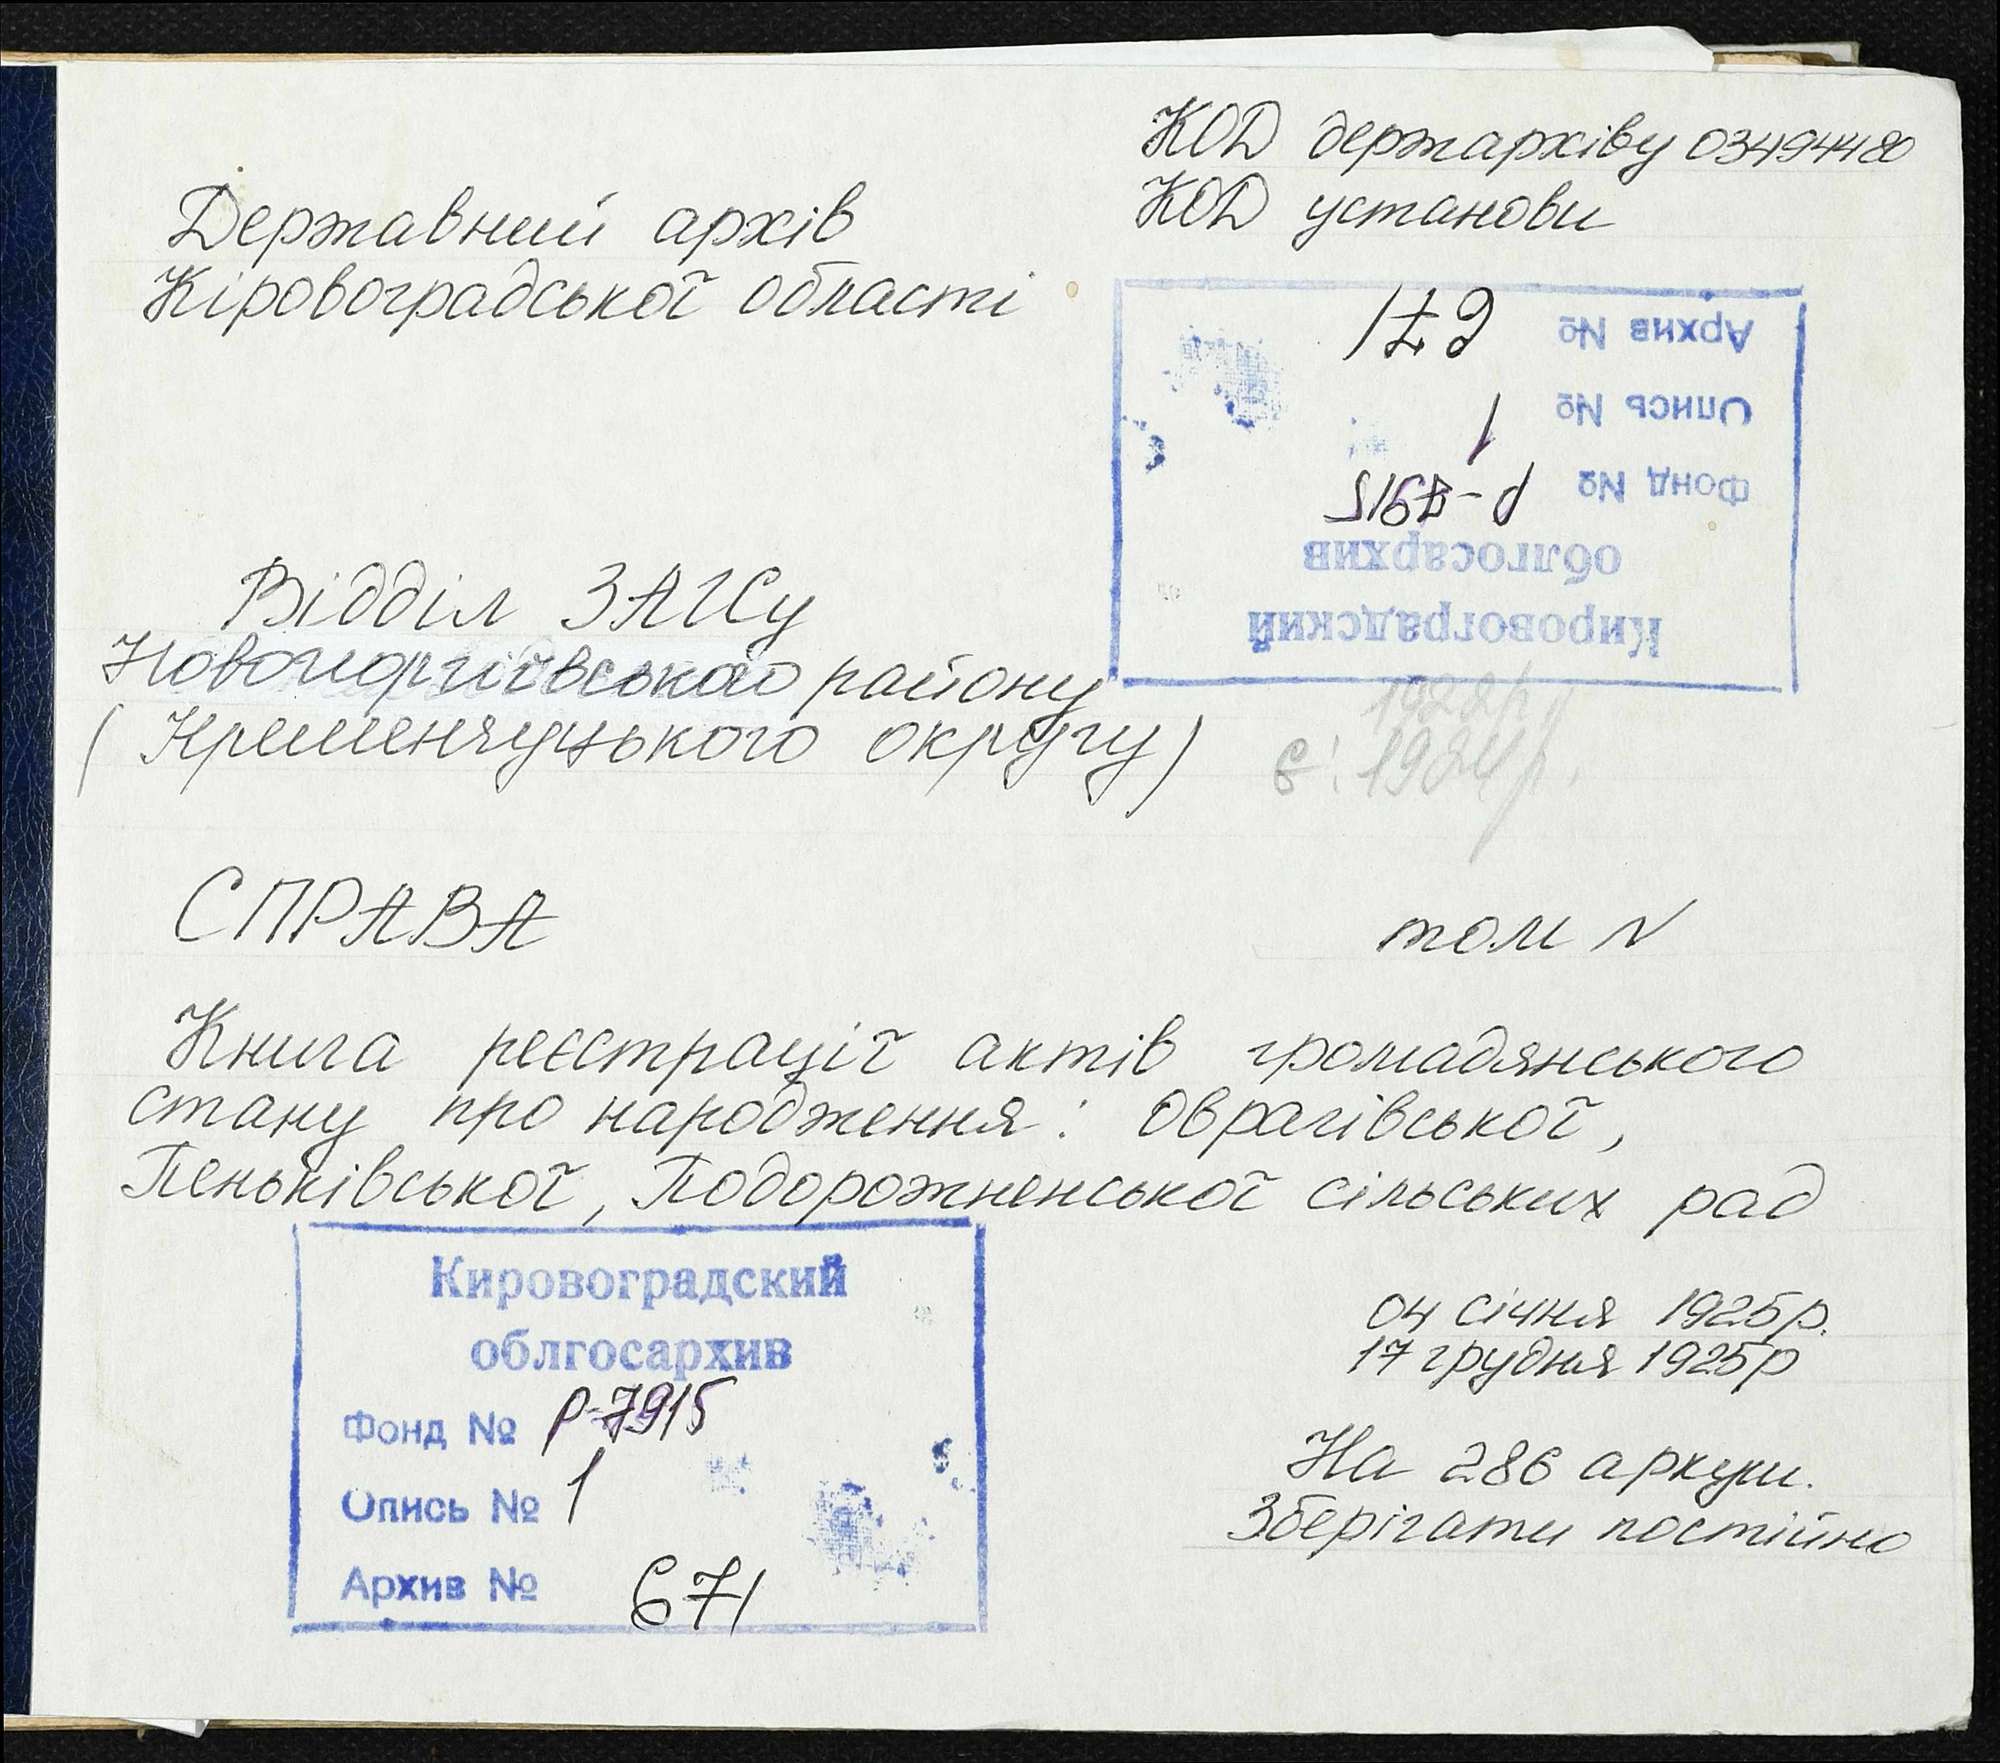 КОД держархіву 03494480
КОД установи
Державний архів
Кіровоградської області
Архив № 671
Опись № 1
Фонд № Р-7915
облгосархив
Кировоградский
Відділ ЗАГСу
Новогеоргіївського району
(Кременчуцького округу)
1922р.
є: 1924р.
СПРАВА
том N
Книга реєстрації актів громадянського
стану про народження: Оврагівської,
Пеньківської, Подорожненської сільських рад
Кировоградский
облгосархив
Фонд № Р-7915
Опись № 1
Архив № 671
04 січня 1925р.
17 грудня 1925р
На 286 аркуш.
Зберігати постійно